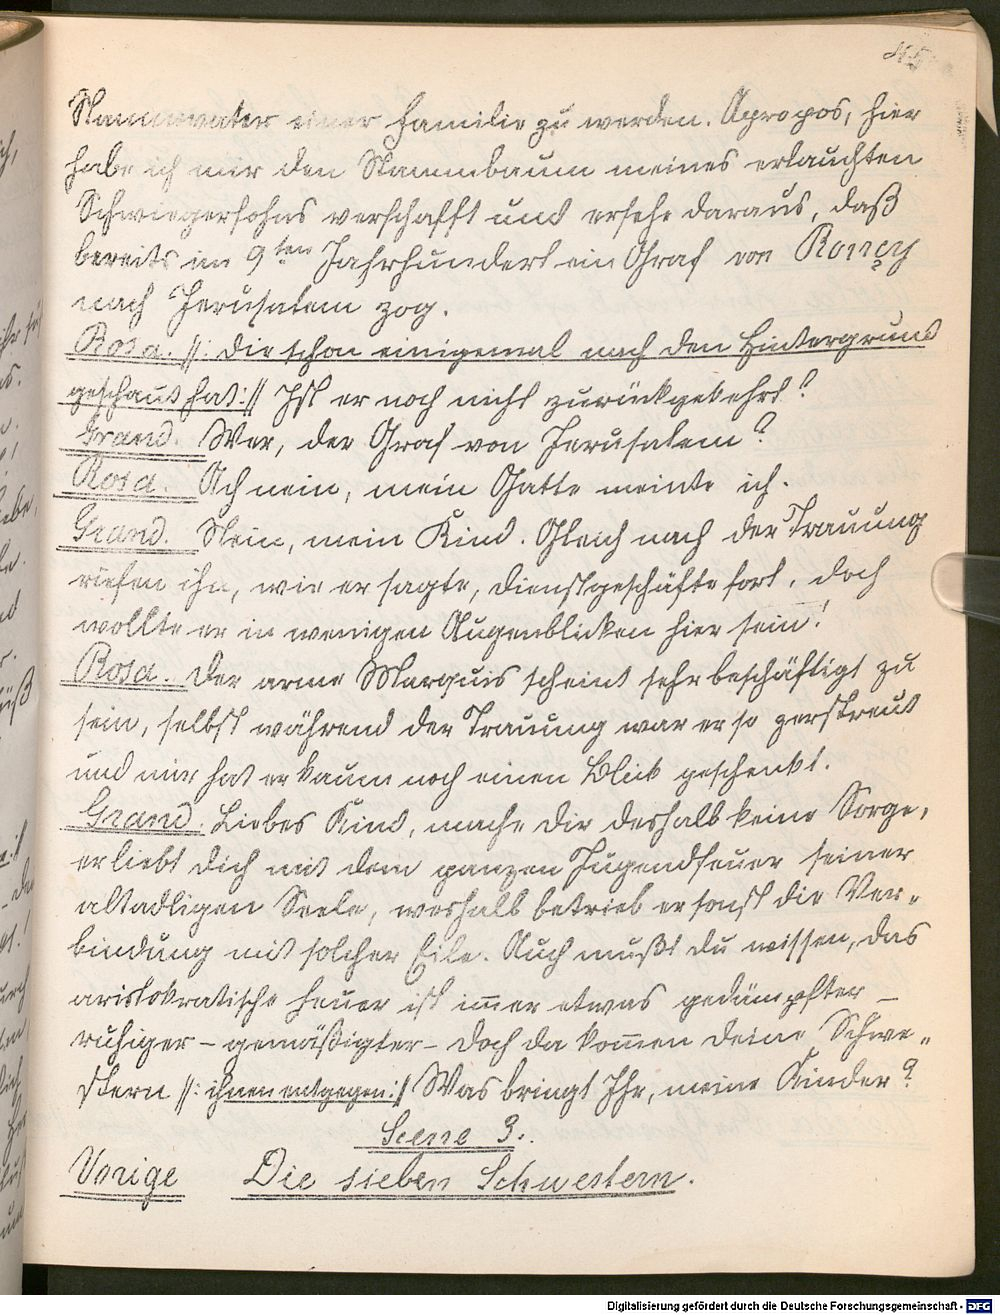 45
Stammvater einer Familie zu werden. Apropos, hier
habe ich mir den Stammbaum meines erlauchten
Schwiegersohns verschafft und ersehe daraus, daß
bereits im 9ten Jahrhundert ein Graf von
nach Jerusalem zog.
Rosa. //: die schon einigemal nach den Hintergrund
geschaut hat :// Ist er noch nicht zurückgekehrt?
Grand. Wer, der Graf von Jerusalem?
Rosa. Ach nein, mein Gatte meinte ich.
Grand. Nein, mein Kind. Gleich nach der Trauung
riefen ihn, wie er sagte, Dienstgeschäfte fort, doch
wollte er in wenigen Augenblicken hier sein!
Rosa. Der arme Marquis scheint sehr beschäftigt zu
sein, selbst während der Trauung war er so zerstreut
und mir hat er kaum noch einen Blick geschenkt.
Grand. Liebes Kind, mache dir deshalb keine Sorge,
er liebt dich mit dem ganzen Jugendfeuer seiner
altadligen Seele, weshalb betrieb er sonst die Ver„
bindung mit solcher Eile. Auch mußt du wissen, das
aristokratische Feuer ist im̅er etwas gedämpfter –
ruhiger – gemäßigter – doch da kom̅en deine Schwe„
stern //: ihnen entgegen :// Was bringt Ihr, meine Kinder?
Scene 3.
Vorige Die sieben Schwestern.
Digitalisierung gefördert durch die Deutsche Forschungsgemeinschaft - DFG